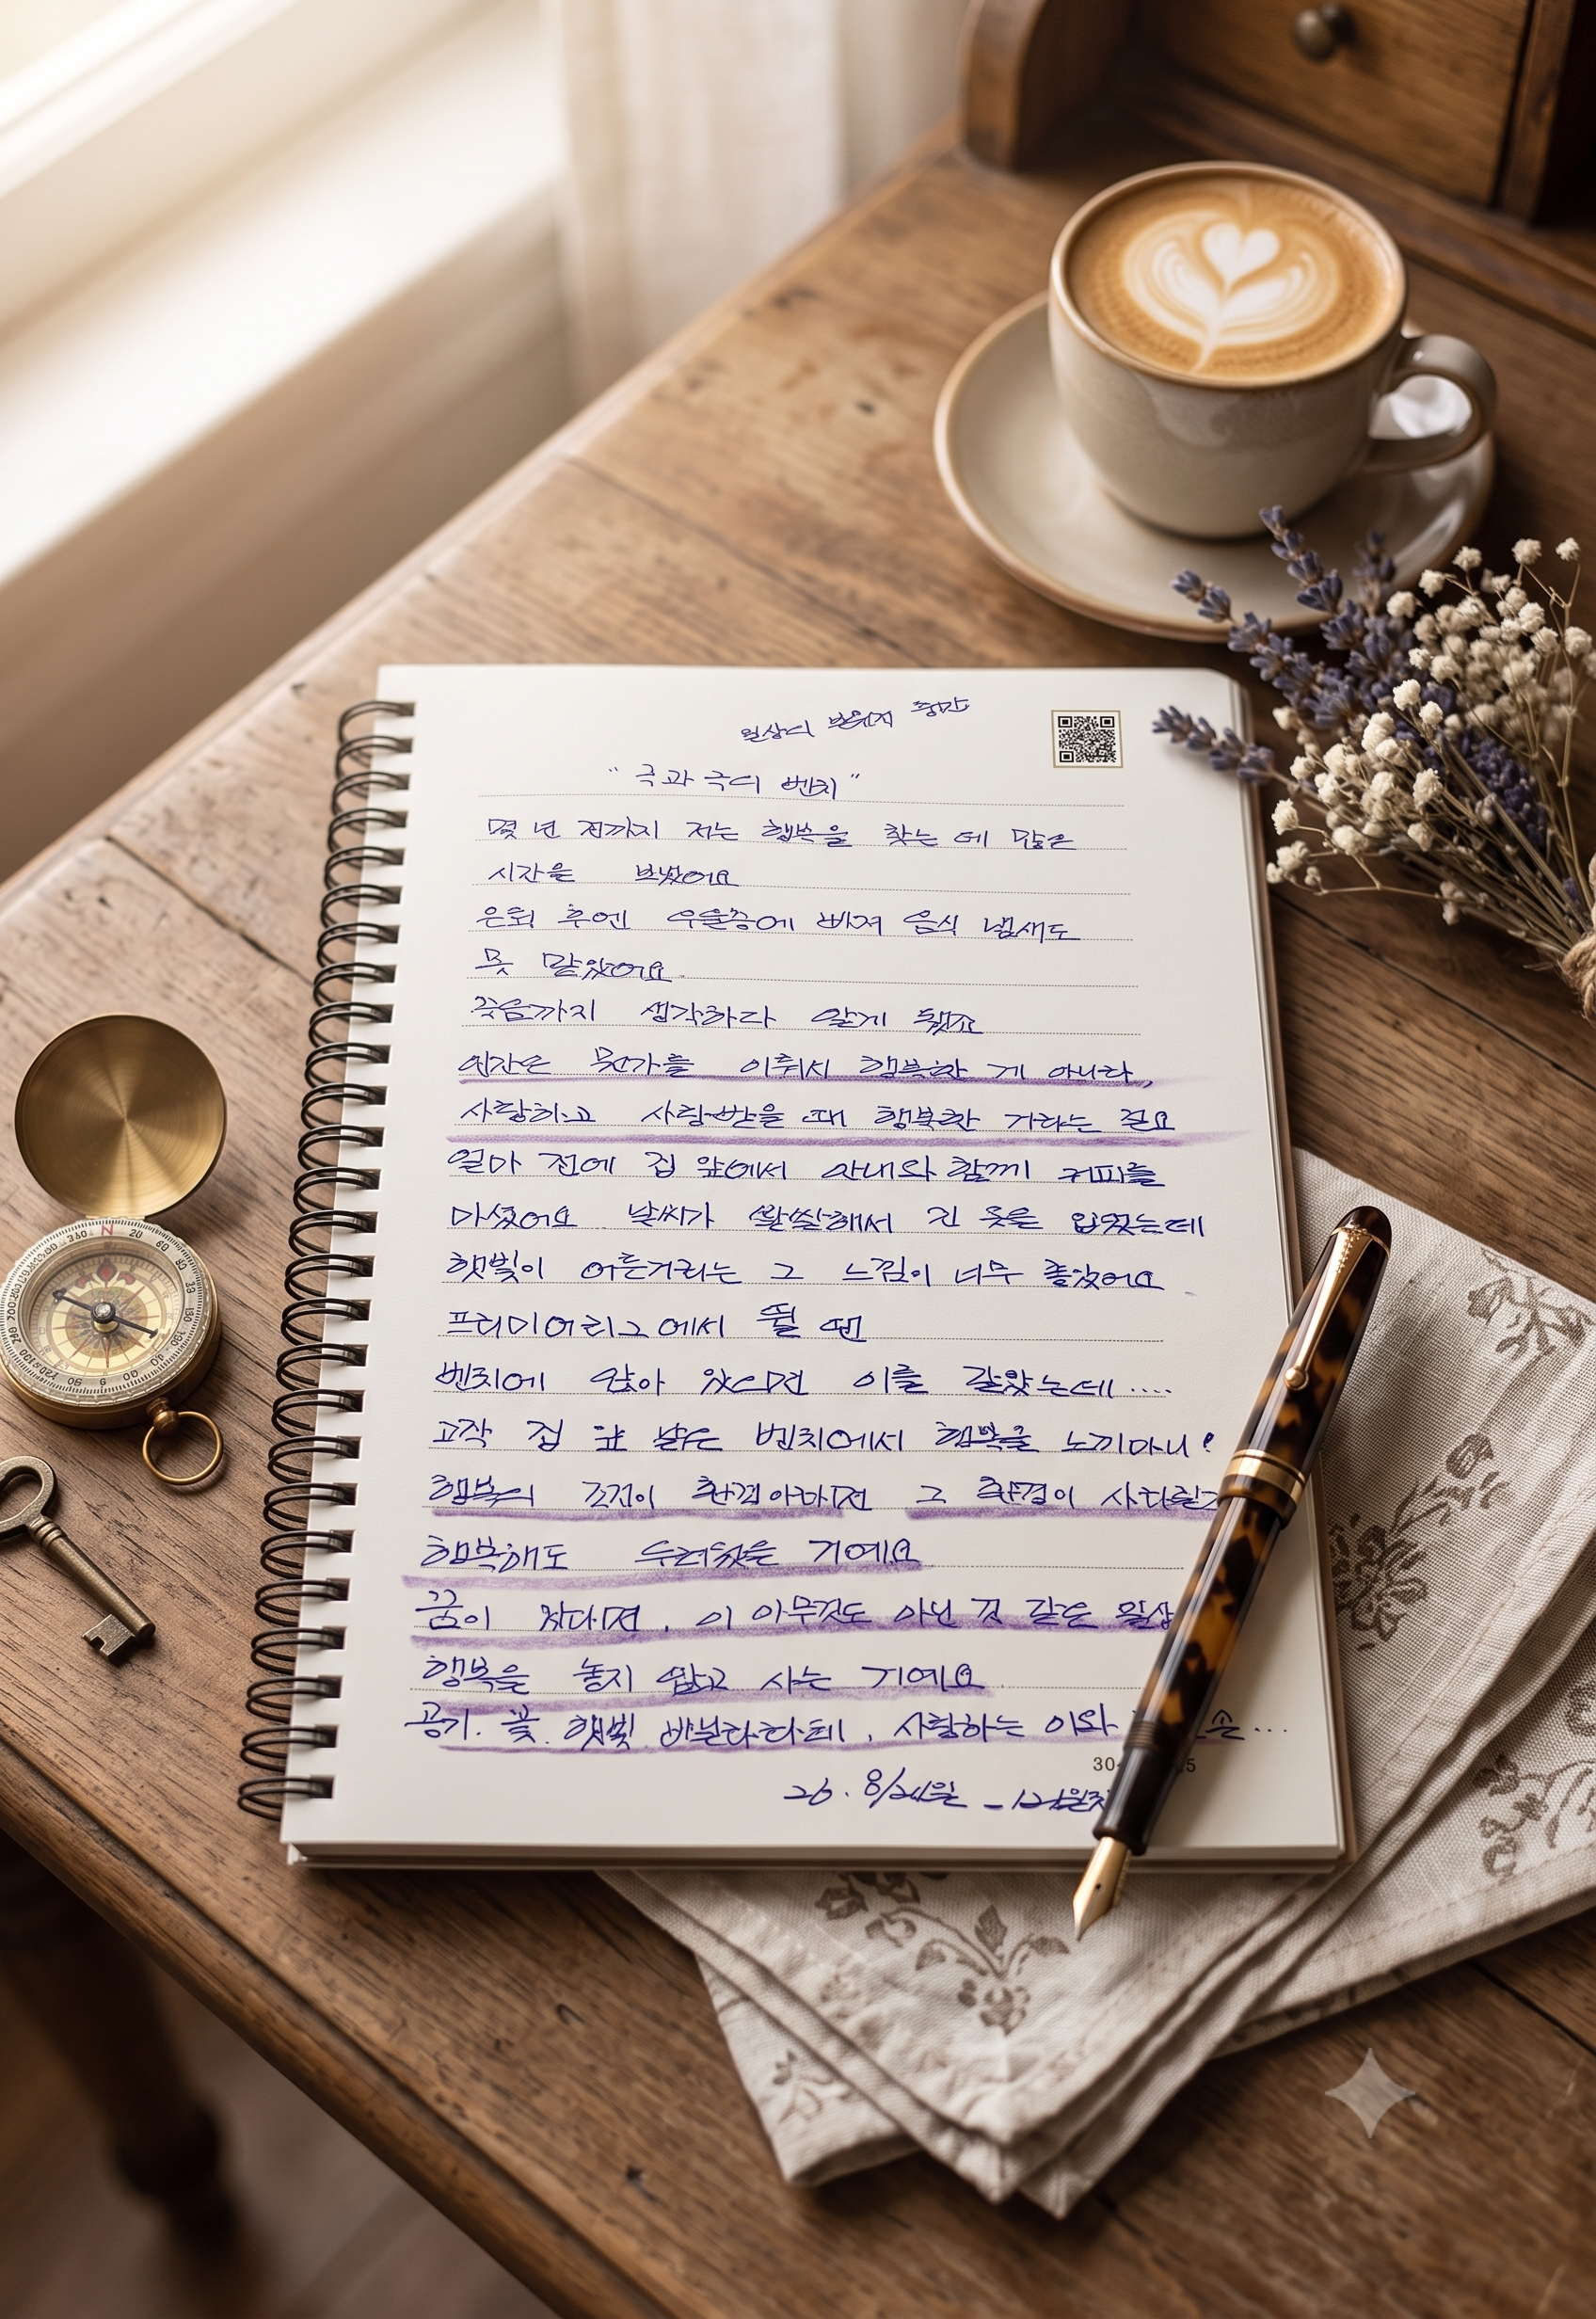 일상의 반원지 중간
"극과 극의 벤치"
몇 년 전까지 저는 행복을 찾는 데 많은
시간을 보냈어요
은퇴 후엔 우울증에 빠져 음식 냄새도
못 맡았어요.
죽음까지 생각하다 알게 됐죠
인간은 뭔가를 이뤄서 행복한 게 아니라,
사랑하고 사랑받을 때 행복한 거라는 걸요
얼마 전에 집 앞에서 아내와 함께 커피를
마셨어요. 날씨가 쌀쌀해서 긴 옷을 입었는데
햇빛이 어른거리는 그 느낌이 너무 좋았어요.
프리미어리그에서 뛸 땐
벤치에 앉아 있으면 이를 갈았는데....
고작 집 앞 낡은 벤치에서 행복을 느끼다니!
행복의 조건이 환경이라면 그 환경이 사라질까
행복해도 두려웠을 거예요
꿈이 컸다면, 이 아무것도 아닌 것 같은 일상
행복을 놓지 않고 사는 거예요.
공기. 꽃. 햇빛. 바닐라라테, 사랑하는 이와 손...
30 5
26. 8/24일